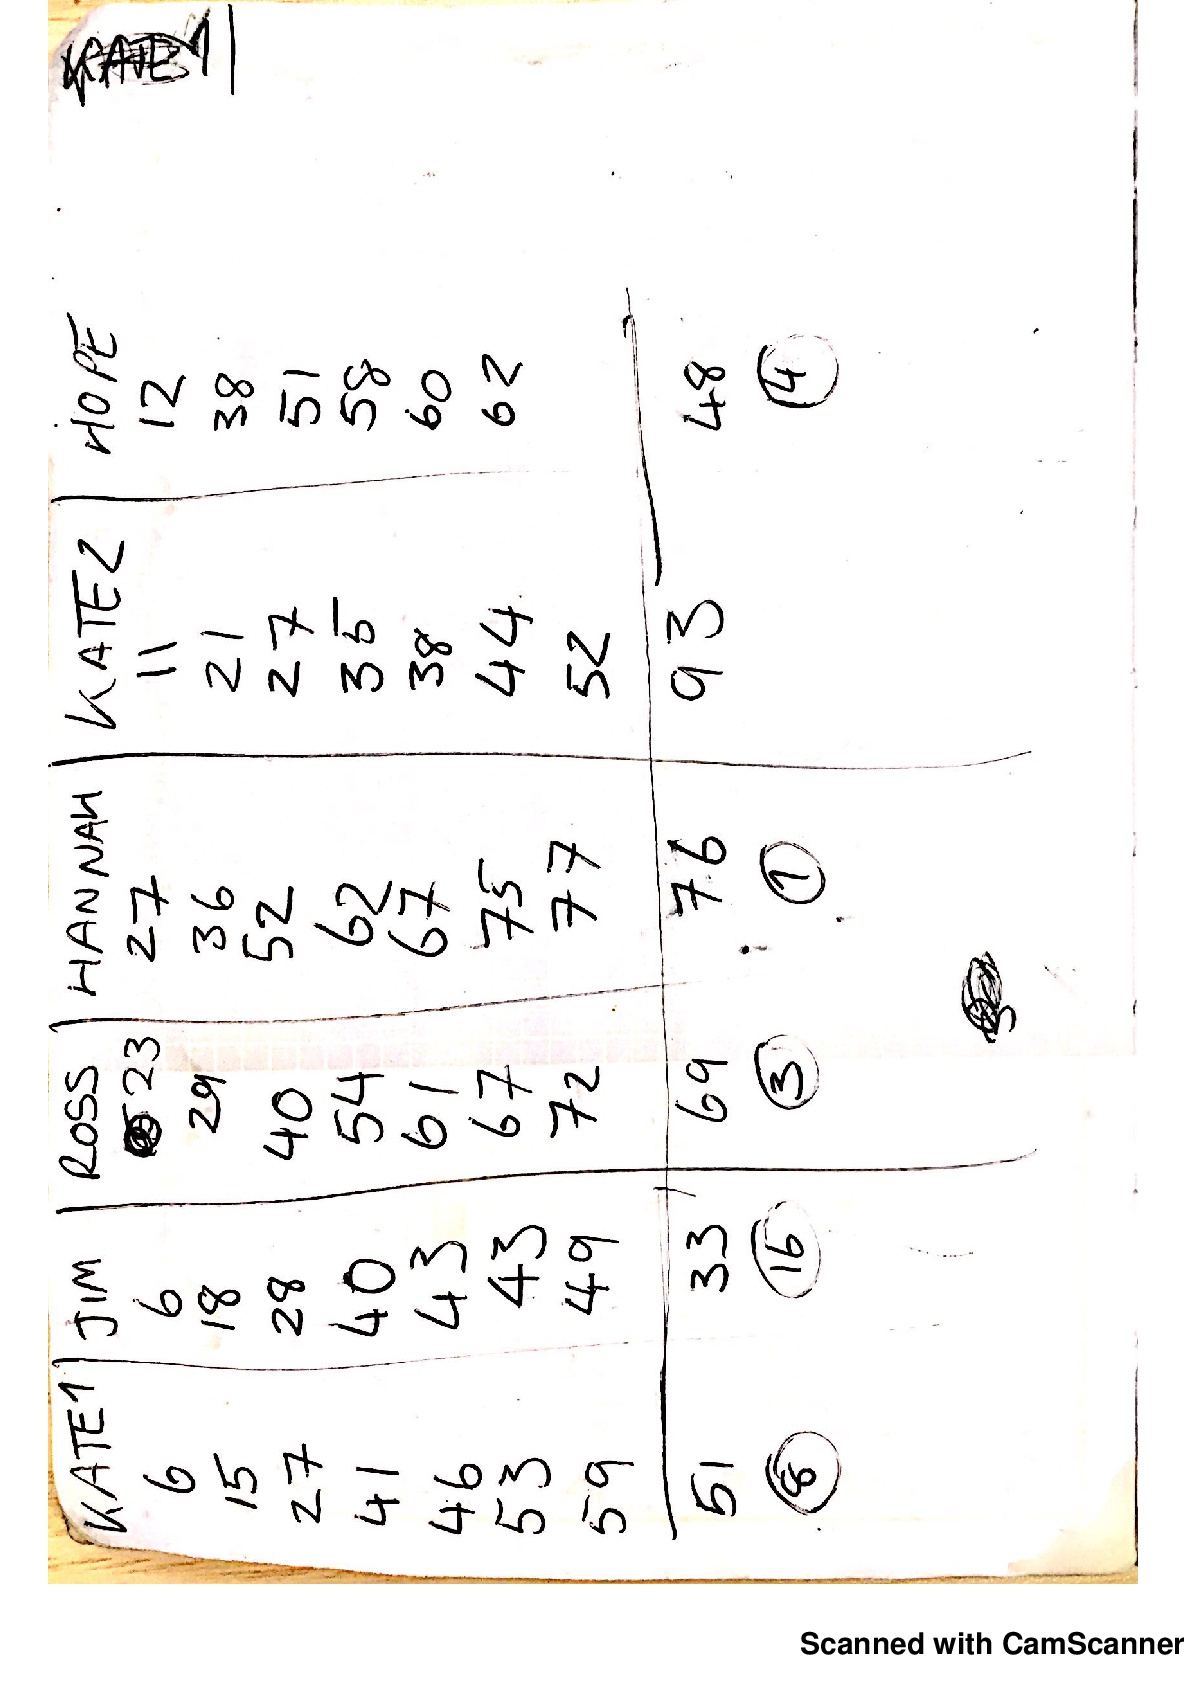 KATE1 JIM ROSS HANNAH KATE2 HOPE
6 6 23 27 11 12
15 18 29 36 21 38
27 28 40 52 27 51
41 40 54 62 35 58
46 43 61 67 38 60
53 43 67 75 44 62
59 49 72 77 52
51 33 69 76 93 48
8 16 3 1 4
Scanned with CamScanner